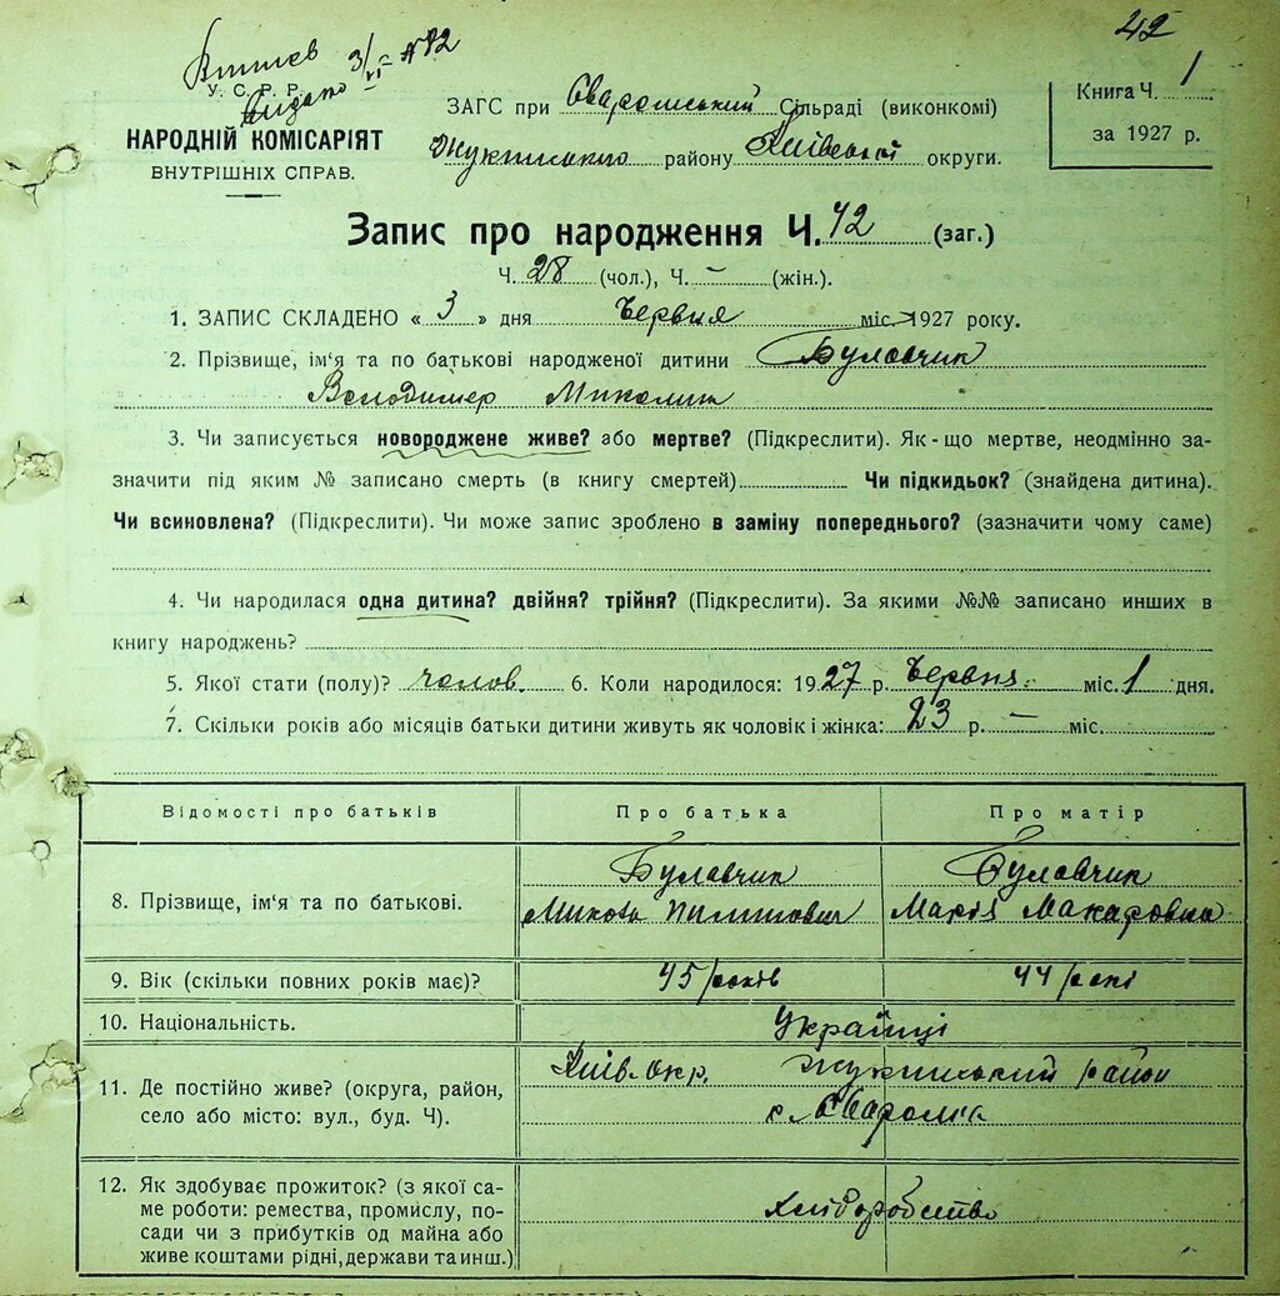 42
Витяг
Видано 3/VI № 42
У. С. Р. Р.
НАРОДНІЙ КОМІСАРІЯТ
ВНУТРІШНІХ СПРАВ.
ЗАГС при Сваромський Сільраді (виконкомі)
Жукинського району Київської округи.
Книга Ч. 1
за 1927 р.
Запис про народження Ч. 42 (заг.)
Ч. 28 (чол.), Ч. – (жін.).
1. ЗАПИС СКЛАДЕНО « 3 » дня Червня міс. 1927 року.
2. Прізвище, ім‘я та по батькові народженої дитини Булавчик
Володимер Миколит
3. Чи записується новороджене живе? або мертве? (Підкреслити). Як-що мертве, неодмінно за-
значити під яким № записано смерть (в книгу смертей) Чи підкидьок? (знайдена дитина).
Чи всиновлена? (Підкреслити). Чи може запис зроблено в заміну попереднього? (зазначити чому саме)
4. Чи народилася одна дитина? двійня? трійня? (Підкреслити). За якими №№ записано инших в
книгу народжень?
5. Якої стати (полу)? чолов. 6. Коли народилося: 1927 р. Червня міс. 1 дня.
7. Скільки років або місяців батьки дитини живуть як чоловік і жінка: 23 р. – міс.
Відомості про батьків Про батька Про матір
8. Прізвище, ім‘я та по батькові.
Булавчик Булавчик
Микола Пилипович Марія Макаровна
9. Вік (скільки повних років має)? 45 років 44 рокі
10. Національність. Українці
11. Де постійно живе? (округа, район,
село або місто: вул., буд. Ч).
Київ. окр. Жукинський район
с. Сваромка
12. Як здобуває прожиток? (з якої са-
ме роботи: ремества, промислу, по-
сади чи з прибутків од майна або
живе коштами рідні, держави та инш.)
Хліборобство